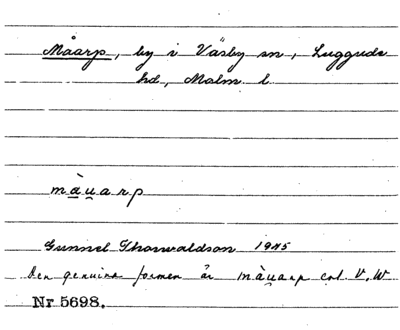 Måarp, by i Väsby sn, Luggude
hd, Malm l.
màu̯arp
Gunnel Thorvaldson 1945
Den genuina formen är màu̯arp enl. V. W
Nr 5698.